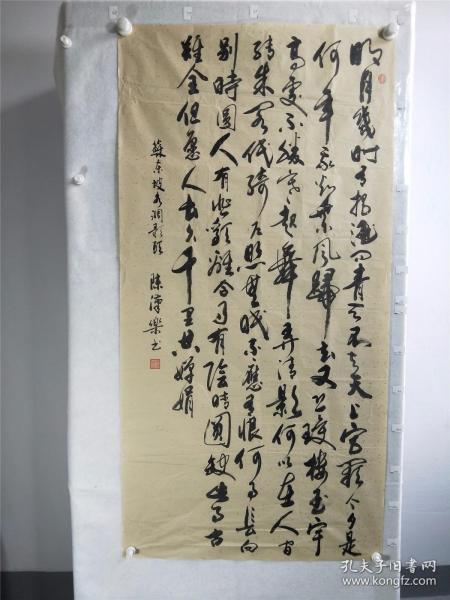 明月幾时有把酒问青天不知天上宫阙今夕是
何年我欲乘风歸去又恐瓊楼玉宇
高处不勝寒起舞弄清影何似在人间
转朱阁低绮户照無眠不應有恨何事長向
别時圆人有悲歡離合月有陰晴圆缺此事古
難全但愿人长久千里共嬋娟
蘇东坡水调歌頭 陈漢樂书
孔夫子旧书网
www.kongfz.com